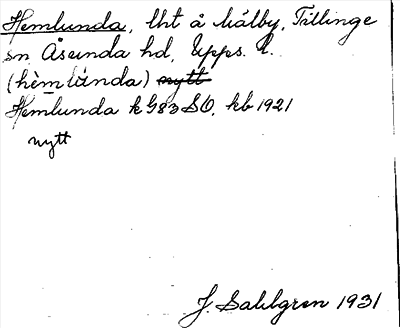 Hemlunda, lht å Målby, Tillinge
sn Åsunda hd, Upps. l.
(hèmlùnda) nytt
Hemlunda k G83 SO, kb 1921
nytt
J. Sahlgren 1931